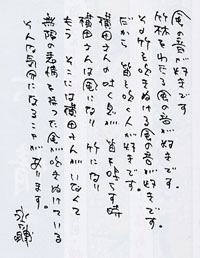 風の音が好きです
竹林をわたる風の音が好きです。
その竹を吹きぬける風の音が好きです。
だから 笛を吹く人が好きです。
横田さんの吐く息が 笛を鳴らす時
横田さんは風になり 竹になり
もう そこには横田さんがいなくて
無限の表情を持った風が吹きぬけている
そんな気分になることがあります。
永六輔